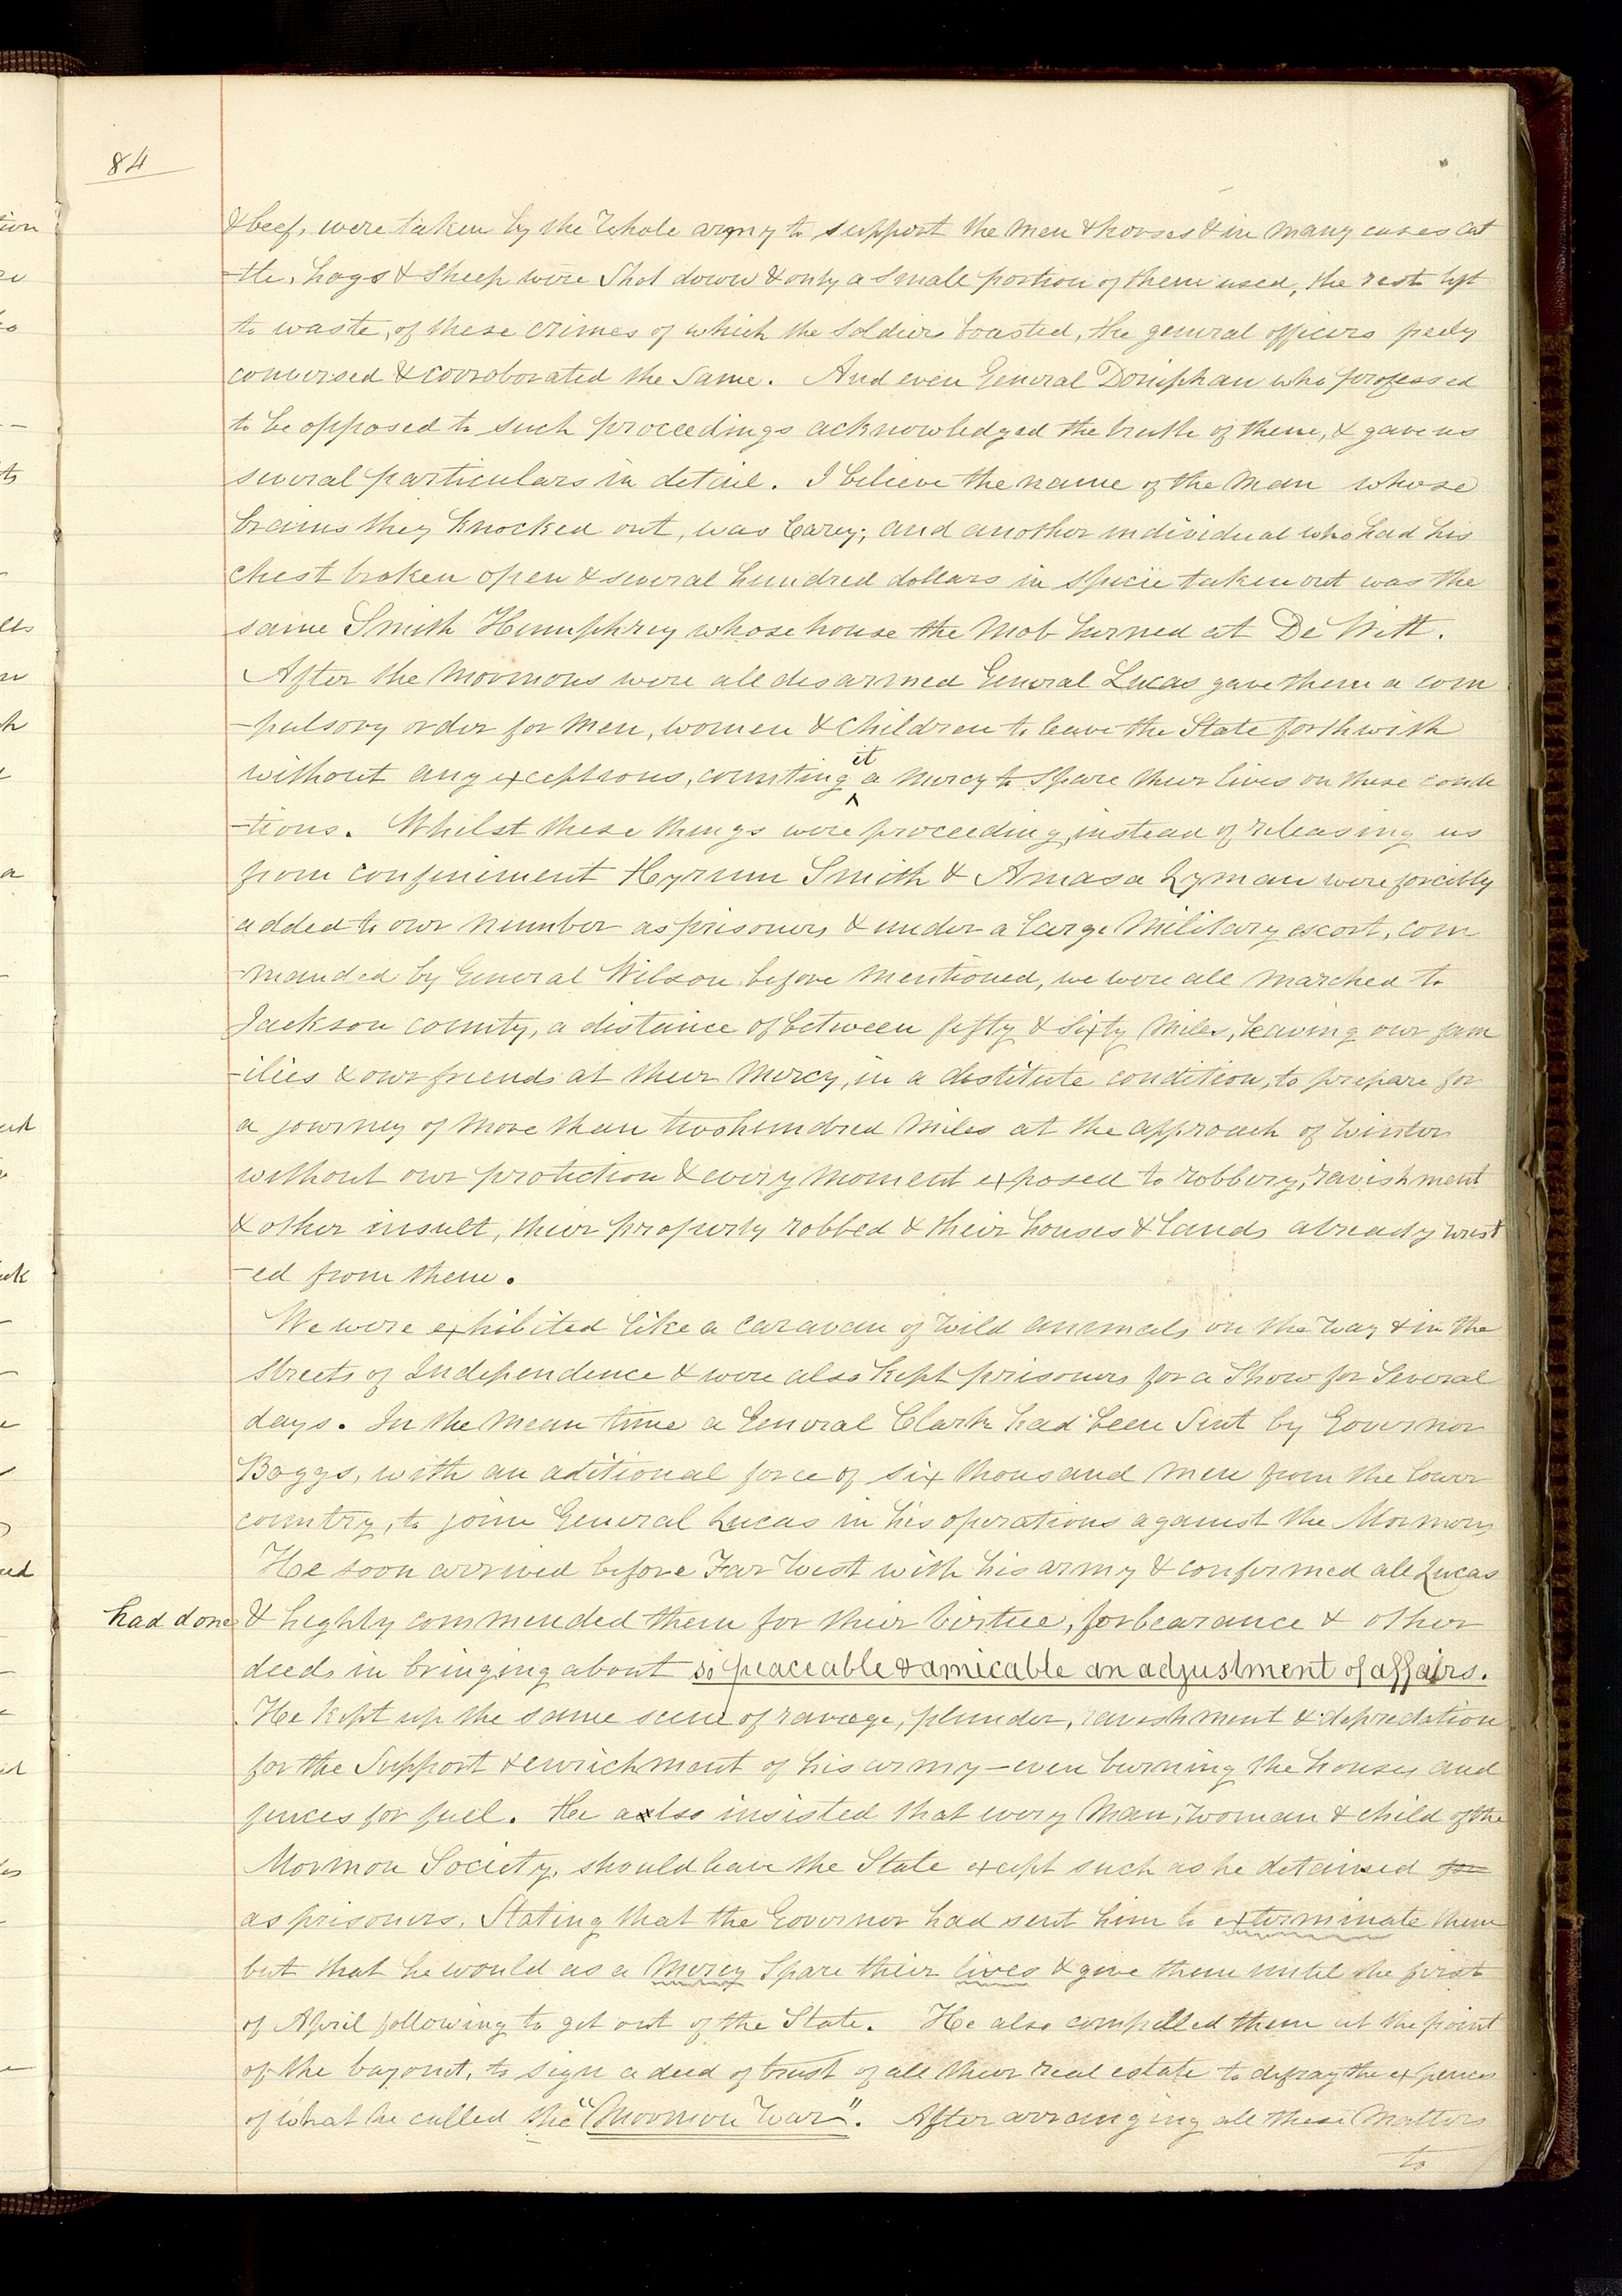 84
& beef, were taken by the whole army to support the men & horses & in many cases cat
-tle, hogs & sheep were shot down & only a smale portion of them used, the rest left
to waste, of these crimes of which the soldiers boasted, the general officers freely
conversed & corroborated the same. And even General Doniphan who professed
to be opposed to such proceedings acknowledged the truth of them, & gave us
several particulars in detail. I believe the name of the man whose
brains they knocked out, was Carey; and another individual who had his
chest broken open & several hundred dollars in specie taken out was the
same Smith Humphrey whose house the mob burned at De Witt.
After the Mormons were all disarmed General Lucas gave them a com
-pulsory order for men, women & children to leave the State forthwith
without any exceptions, counting it a mercy to spare their lives on these condi
-tions. Whilst these things were proceeding, instead of releasing us
from confinement Hyrum Smith & Amasa Lyman were forcibly
added to our number as prisoners & under a large military escort, com
-manded by General Wilson before mentioned, we were all marched to
Jackson county, a distance of between fifty & sixty miles, leaving our fam
-ilies & our friends at their mercy, in a destitute condition, to prepare for
a journey of more than two hundred miles at the approach of winter
without our protection & every moment exposed to robbery, ravishment
& other insult, their property robbed & their houses & lands already wrest
-ed from them.
We were exhibited like a caravan of wild animals on the way & in the
streets of Independence & were also kept prisoners for a show for several
days. In the mean time a General Clark had been sent by Governor
Boggs, with an aditional force of six thousand men from the lower
country, to join General Lucas in his operations against the Mormons
He soon arrived before Far West with his army & confirmed all Lucas
had done & highly commended them for their virtue, forbearance & other
deeds in bringing about so peaceable & amicable an adjustment of affairs.
He kept up the same scene of ravage, plunder, ravishment & depredation
for the support & enrichment of his army—even burning the houses and
fences for fuel. He also insisted that every man, woman & child of the
Mormon Society, should leave the State except such as he detained for
as prisoners, stating that the Governor had sent him to exterminate them
but that he would as a mercy spare their lives & give them until the first
of April following to get out of the State. He also compelled them at the point
of the bayonet, to sign a deed of trust of all their real estate to defray the expences
of what he called the "Mormon War". After arranging all these matters
to